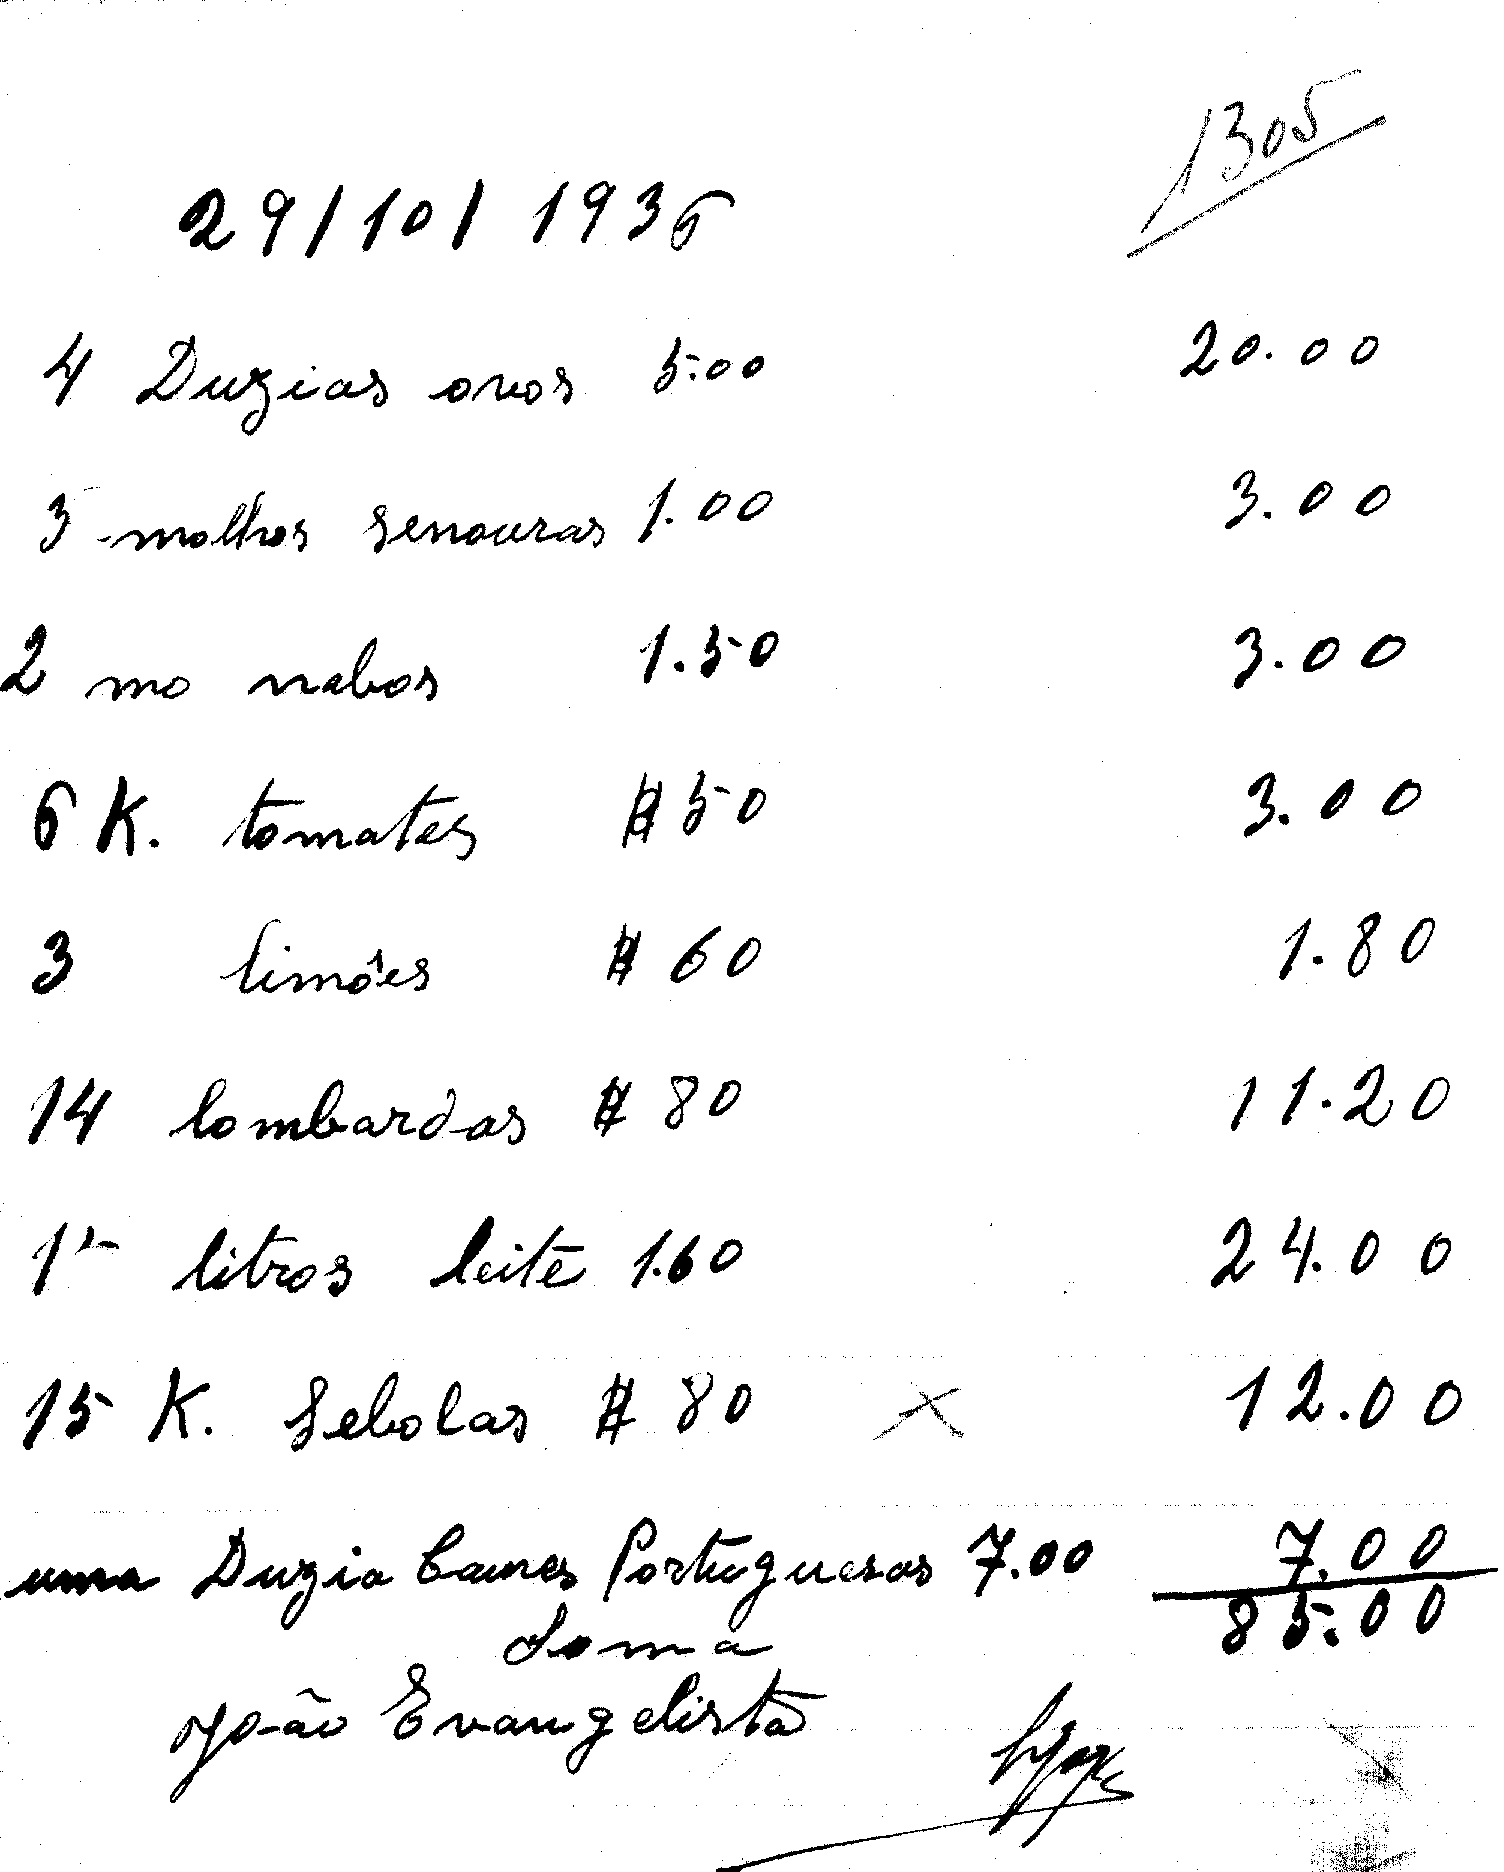 1305
29/10/1936
4 Duzias ovos 5.00 20.00
3 molhos senouras 1.00 3.00
2 mo nabos 1.50 3.00
6 K. tomates $50 3.00
3 limões $60 1.80
14 lombardas $80 11.20
15 litros leite 1.60 24.00
15 K. Sebolas $80 x 12.00
uma Duzia Couves Portuguesas 7.00 7.00
Soma 85.00
João Evangelista